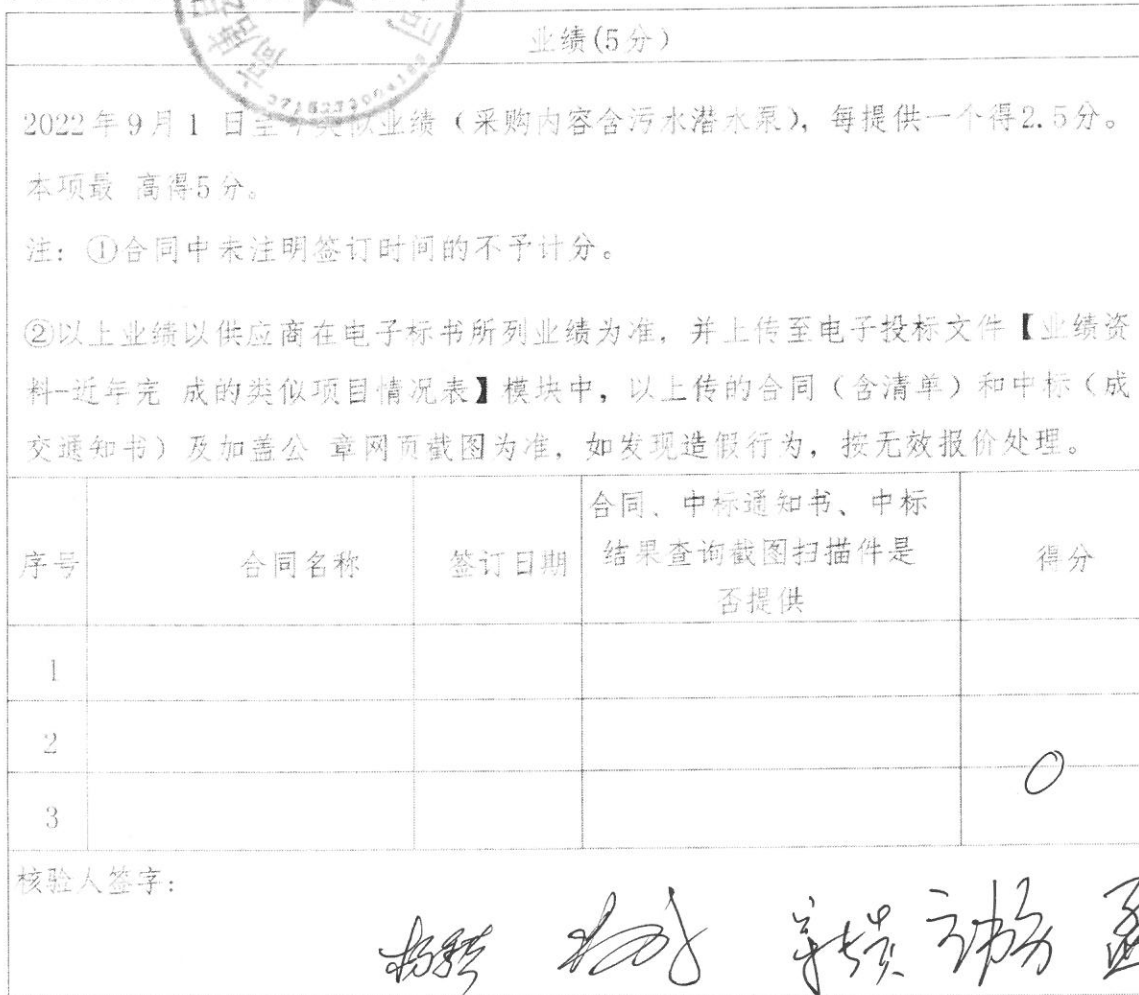 业绩(5分)
2022年9月1 日至今类似业绩（采购内容含污水潜水泵），每提供一个得2.5分。
本项最 高得5分。
注：①合同中未注明签订时间的不予计分。
②以上业绩以供应商在电子标书所列业绩为准，并上传至电子投标文件【业绩资
料-近年完 成的类似项目情况表】模块中，以上传的合同（含清单）和中标（成
交通知书）及加盖公 章网页截图为准，如发现造假行为，按无效报价处理。
序号
合同名称
签订日期
合同、中标通知书、中标
结果查询截图扫描件是
否提供
得分
1
2
0
3
核验人签字：